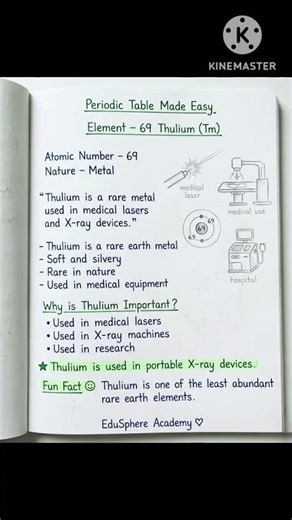 KINEMASTER
Periodic Table Made Easy
Element – 69 Thulium (Tm)
Atomic Number – 69
Nature – Metal
medical
laser
"Thulium is a rare metal
used in medical lasers
and X-ray devices."
medical use
69
69
69
– Thulium is a rare earth metal
– Soft and silvery
– Rare in nature
– Used in medical equipment
hospital
Why is Thulium Important?
• Used in medical lasers
• Used in X-ray machines
• Used in research
★ Thulium is used in portable X-ray devices.
Fun Fact ☺ Thulium is one of the least abundant
rare earth elements.
EduSphere Academy ♡